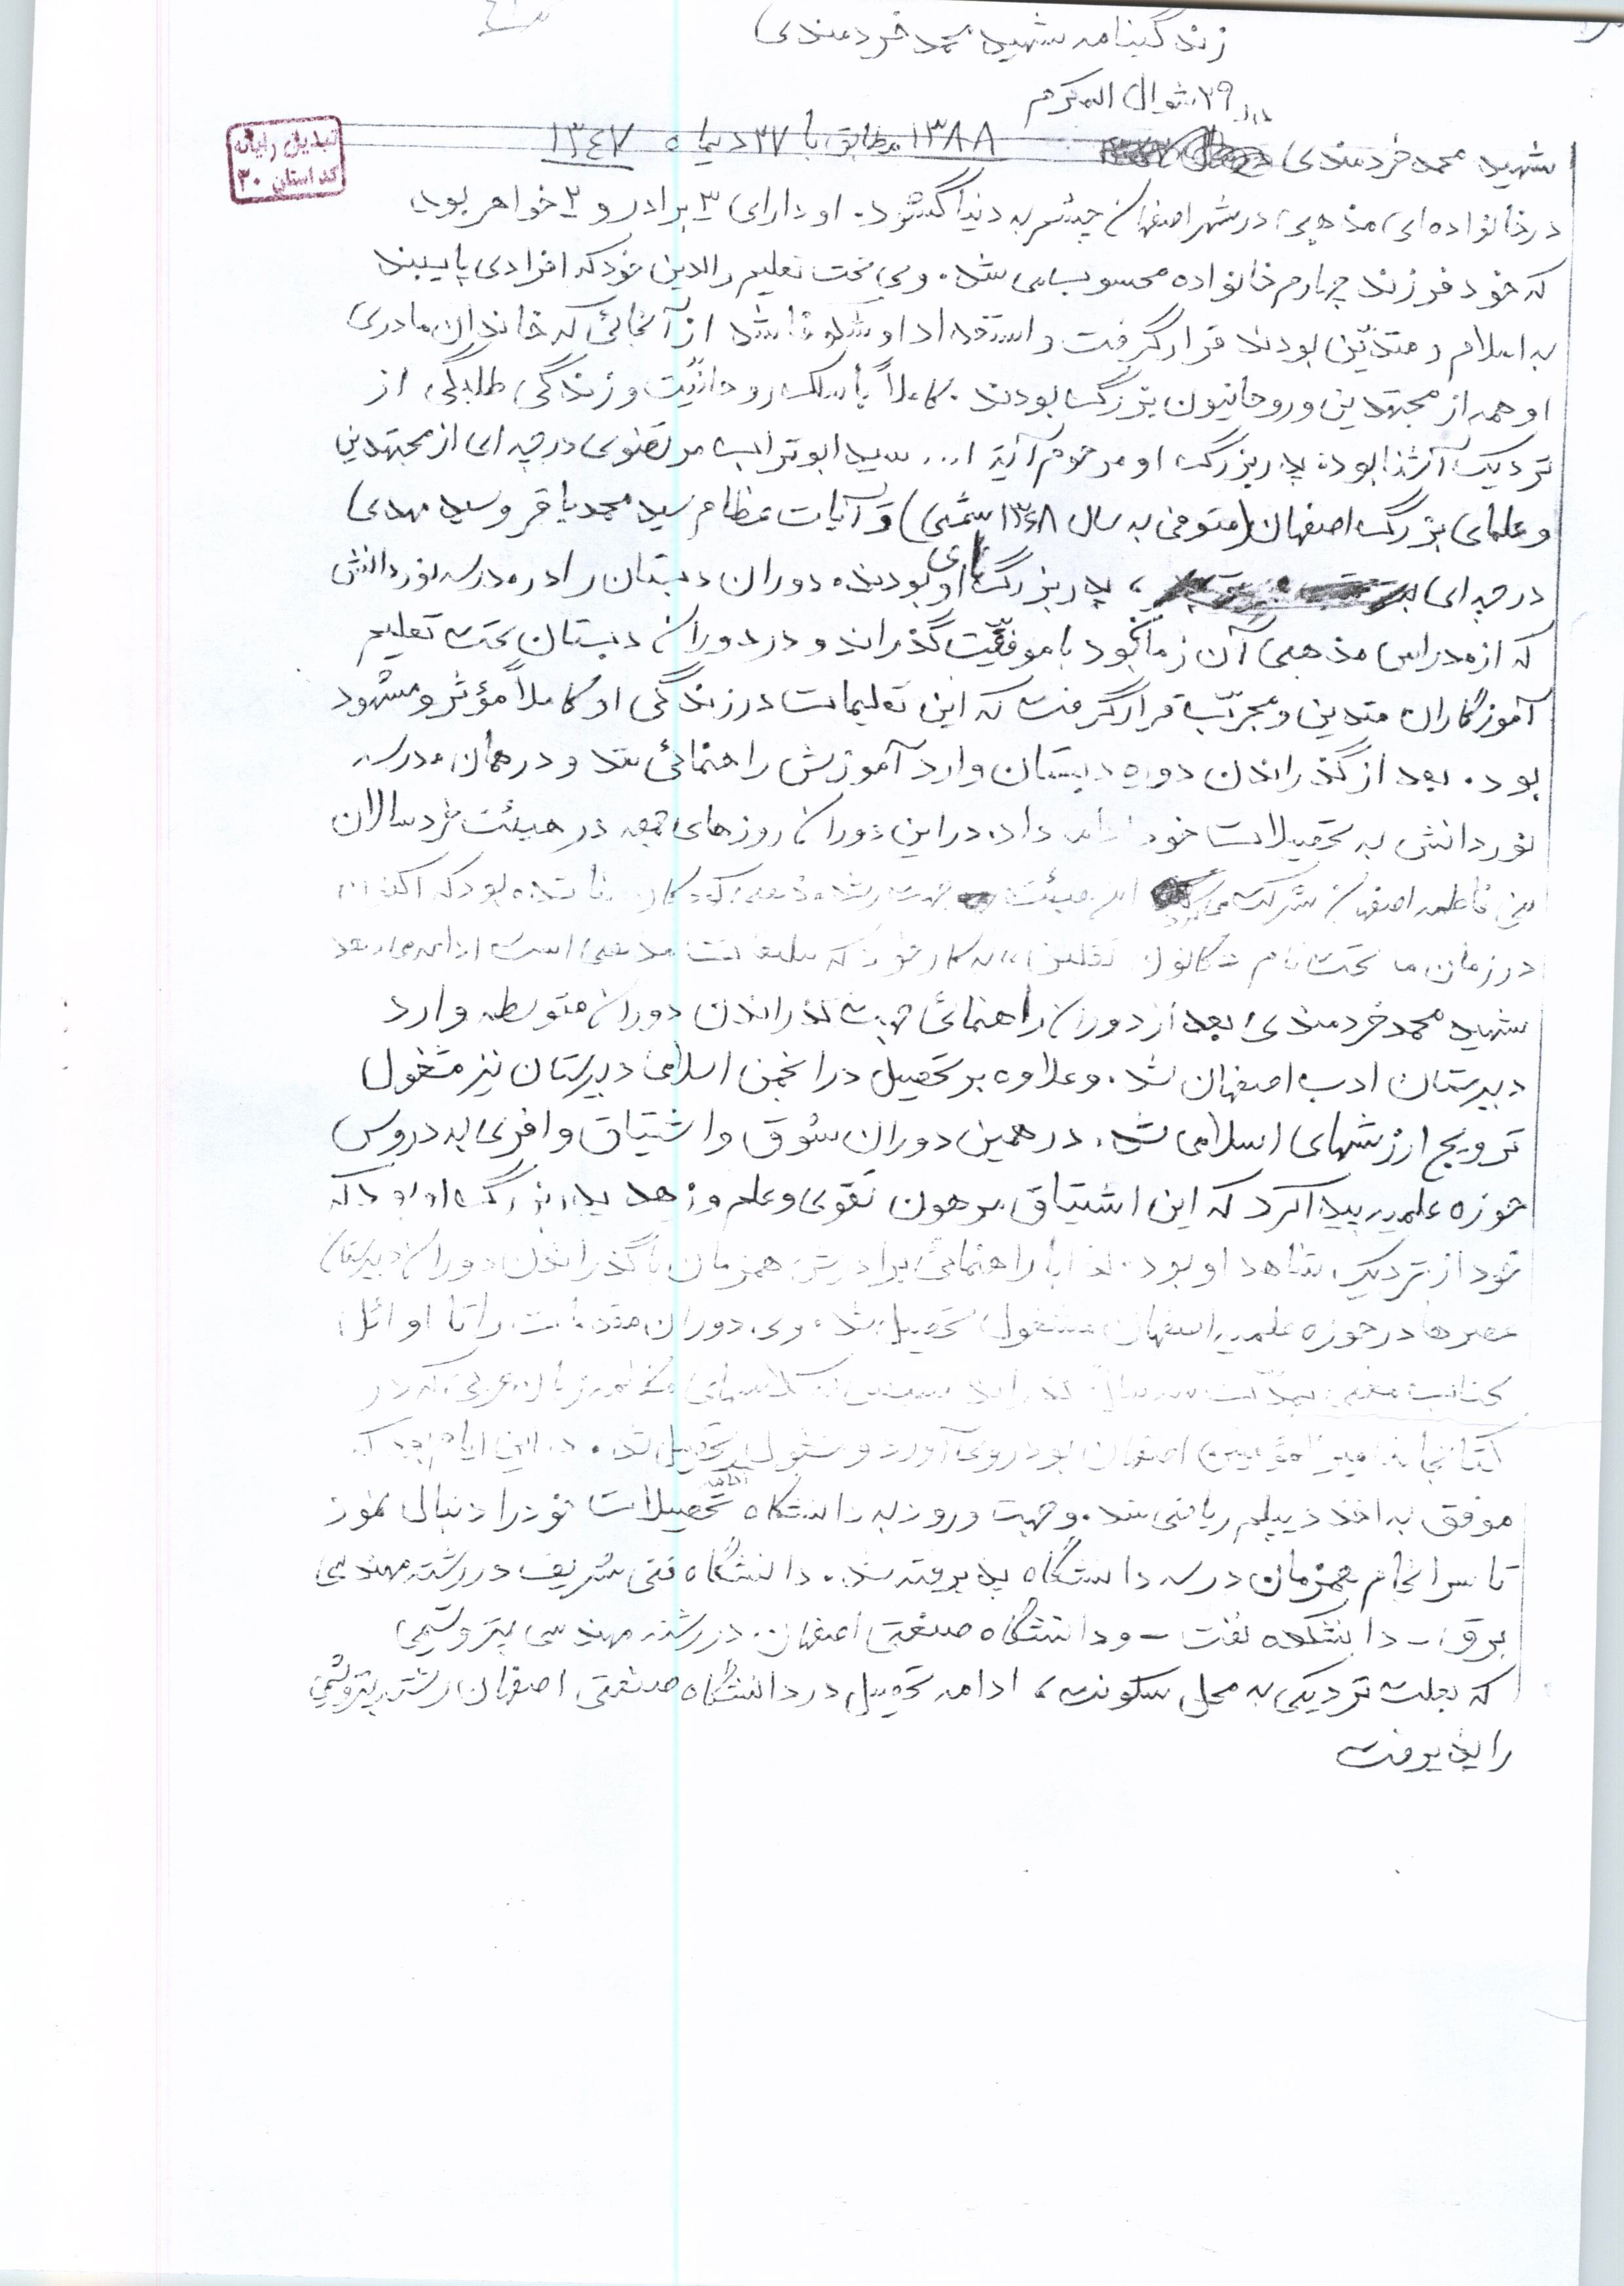 زندگینامه شهید محمد خردمندی
در ۲۹ شوال المکرم
شهید محمد خردمندی ۱۳۸۸ مطابق با ۲۷ دیماه ۱۳۴۷
تبدیل رایانه
کد استان ۳۰
در خانواده‌ای مذهبی در شهر اصفهان چشم به دنیا گشود. او دارای ۳ برادر و ۲ خواهر بود
که خود فرزند چهارم خانواده محسوب می شد. وی تحت تعلیم والدین خود که افرادی پایبند
به اسلام و متدّین بودند قرار گرفت و استعداد او شکوفا شد از آنجائی که خاندان مادری
او همه از مجتهدین و روحانیون بزرگ بودند. کاملاً با سلک روحانیّت و زندگی طلبگی از
نزدیک آشنا بود. پدر بزرگ او مرحوم آیة ا... سید ابوتراب مرتضوی درچه ای از مجتهدین
و علمای بزرگ اصفهان (متوفی به سال شمسی) و آیات عظام سید محمد باقر و سید مهدی
درچه ای ، پدر بزرگ های او بودند. دوران دبستان را در مدرسه نور دانش
که از مدارس مذهبی آن زمان بود با موفقیّت گذراند و در دوران دبستان تحت تعلیم
آموزگاران متدین و مجرّب قرار گرفت که این تعلیمات در زندگی او کاملاً مؤثر و مشهود
بود. بعد از گذراندن دوره دبستان وارد آموزش راهنمائی شد و در همان مدرسه
نور دانش به تحصیلات خود ادامه داد. در این دوران روزهای جمعه در هیئت خردسالان
بنی فاطمه اصفهان شرکت می این هیئت جهت رشد مذهبی کودکان بنا شده بود که اکنون
در زمان ما تحت نام «کانون ثقلین» به کار خود که مذهبی است ادامه می دهد
شهید محمد خردمندی بعد از دوران راهنمائی جهت گذراندن دوران متوسطه وارد
دبیرستان ادب اصفهان شد. و علاوه بر تحصیل در انجمن اسلامی دبیرستان نیز مشغول
ترویج ارزشهای اسلامی شد. در همین دوران شوق و اشتیاق وافری به دروس
حوزه علمیه پیدا کرد که این اشتیاق مرهون تقوی و علم و زهد پدر بزرگ او بود که
خود از نزدیک شاهد او بود. لذا با راهنمائی برادرش همزمان با گذراندن دوران دبیرستان
عصرها در حوزه علمیه اصفهان مشغول تحصیل شد. وی دوران مقدمات را تا اوائل
کتاب مغنی بمدّت سه سال گذراند سپس به کلاسهای زبان عربی که در
کتابخانه امیر المؤمنین اصفهان بود روی آورد و مشغول تحصیل شد. در این ایام بود که
موفق به اخذ دیپلم ریاضی شد. و جهت ورود به دانشگاه تحصیلات خود را دنبال نمود
تا سرانجام همزمان در سه دانشگاه پذیرفته شد. دانشگاه فنی شریف در رشته مهندسی
برق - دانشکده نفت - و دانشگاه صنعتی اصفهان در رشته مهندسی پتروشیمی
که بعلت نزدیکی به محل سکونت، ادامه تحصیل در دانشگاه صنعتی اصفهان رشته پتروشیمی
را پذیرفت